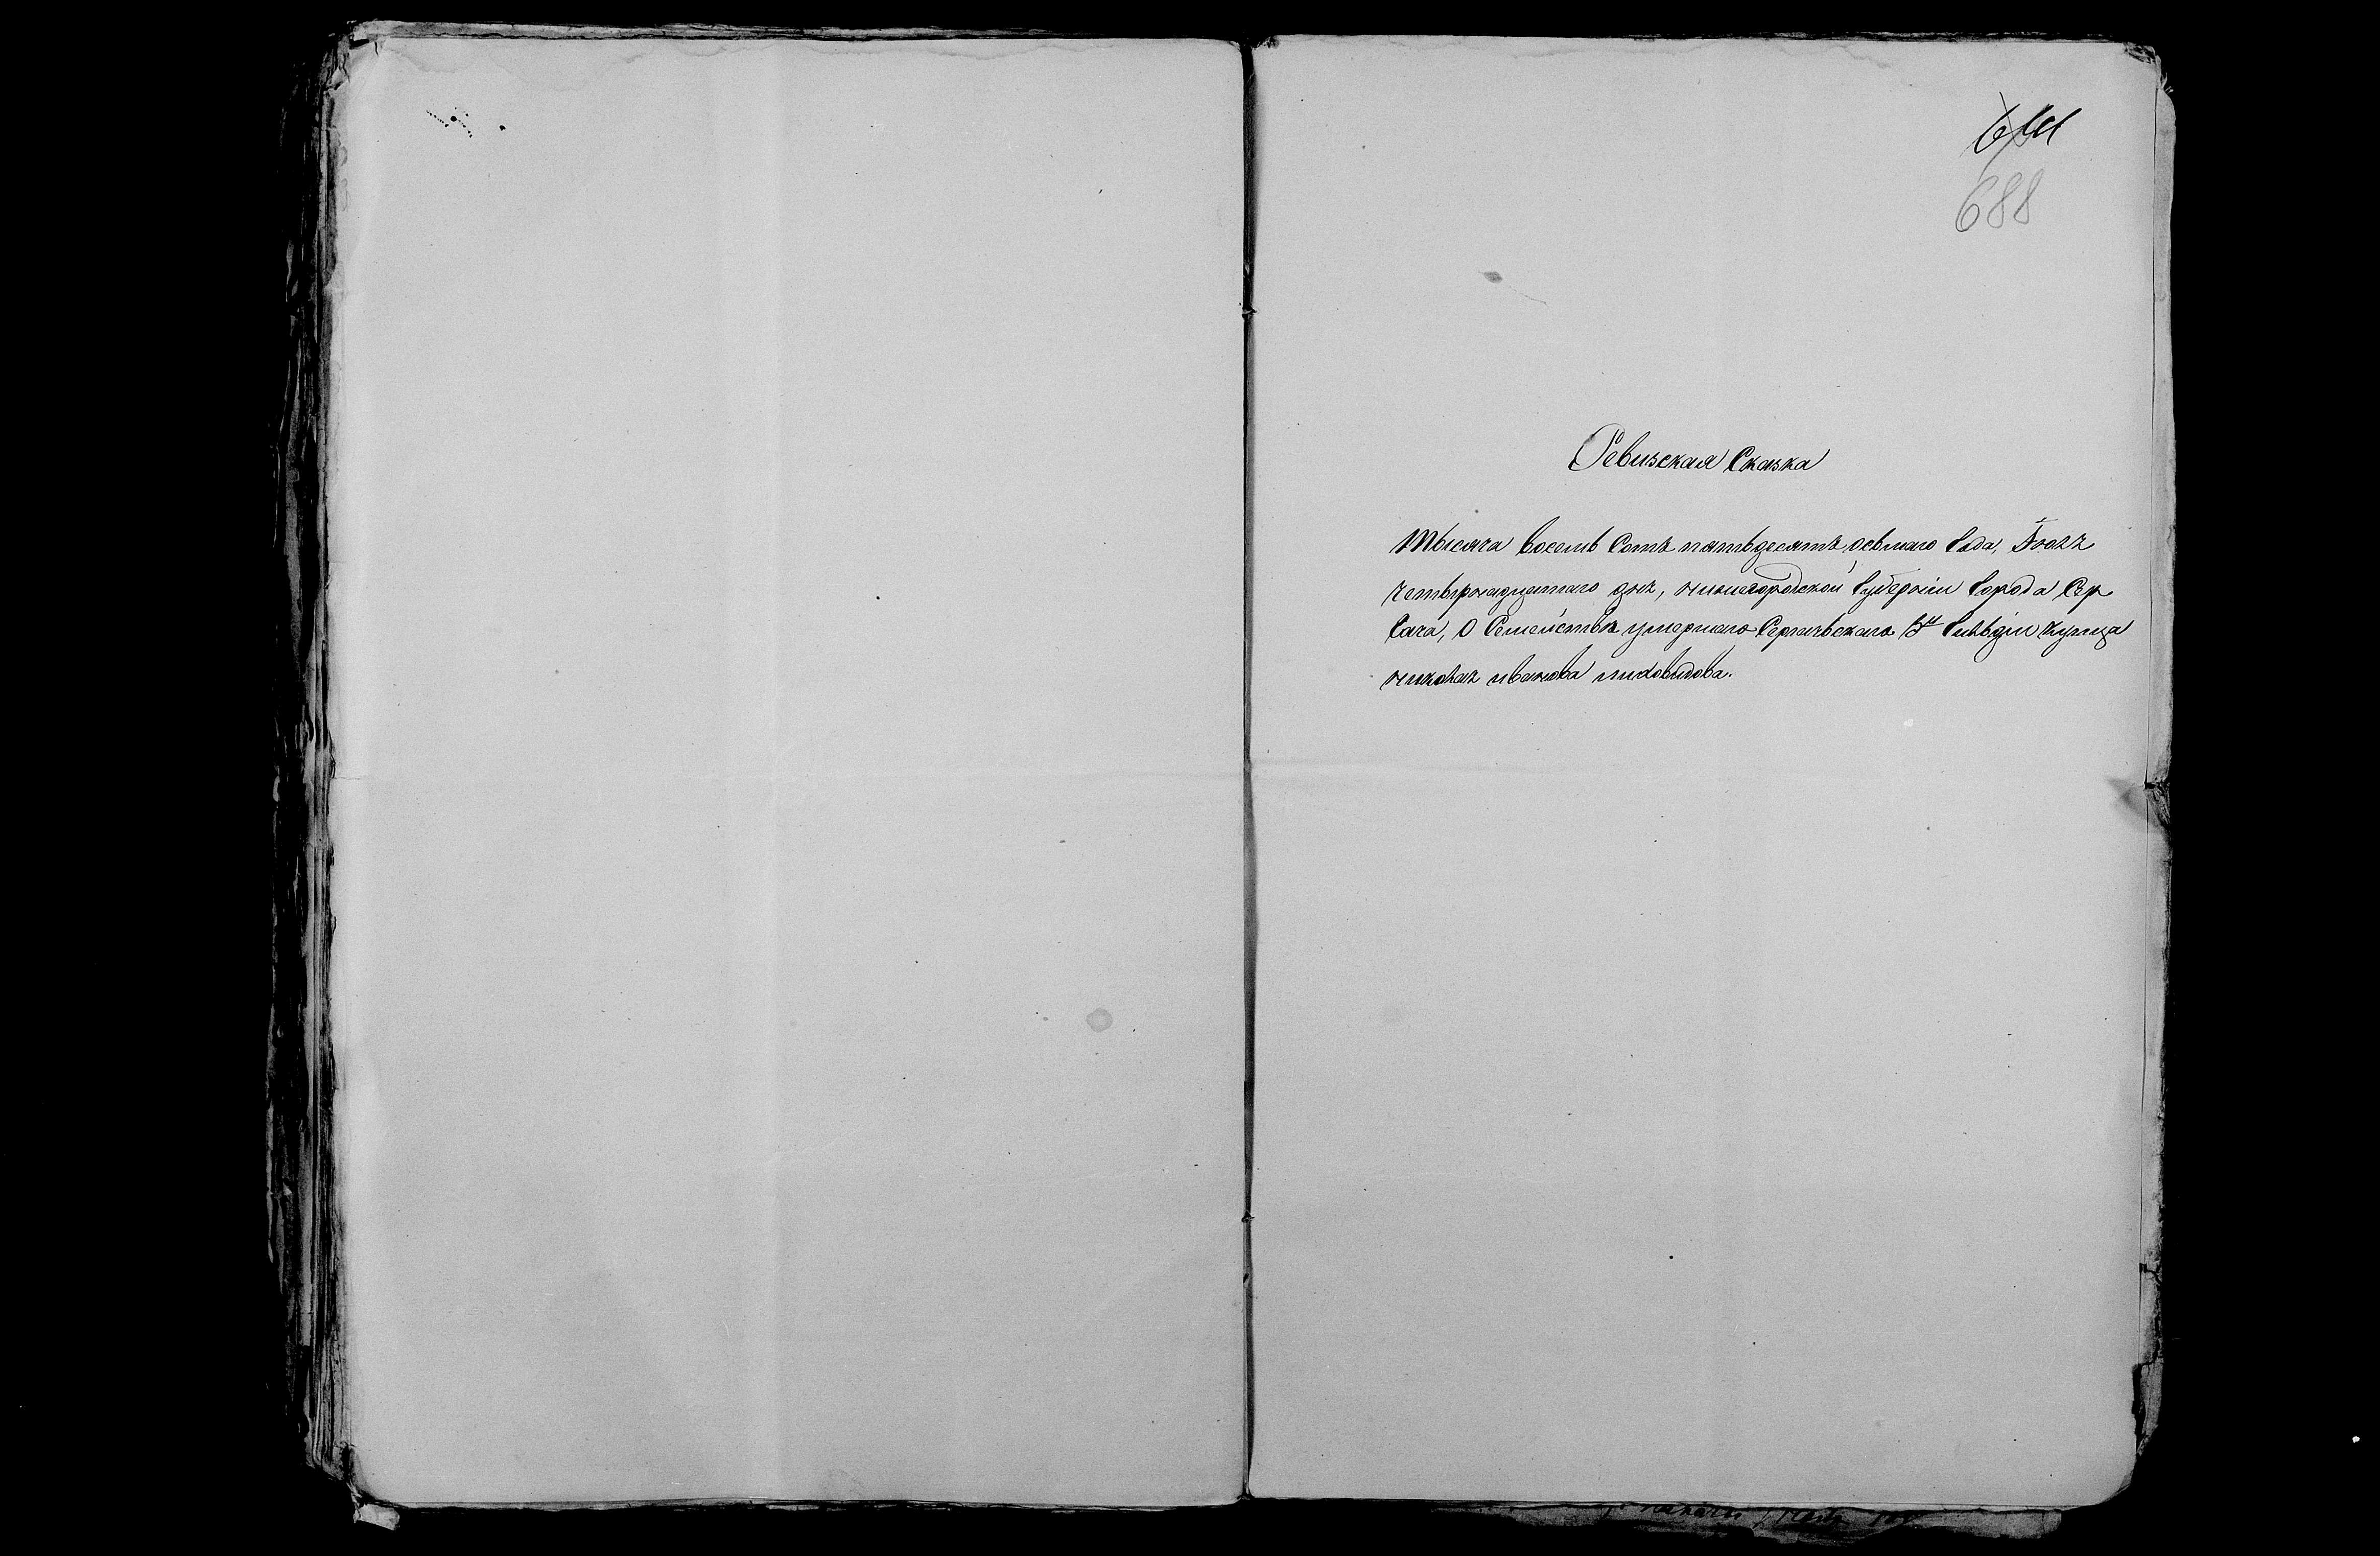 688
Ревизская Сказка
Тысяча восемь Сотъ пятьдесятъ осьмаго Года,
четырнадцатаго дня, нижегородской Губерніи Города Сер
гача, О Семействѣ умершаго Сергачьскаго 3й Гильдіи купца
николая иванова